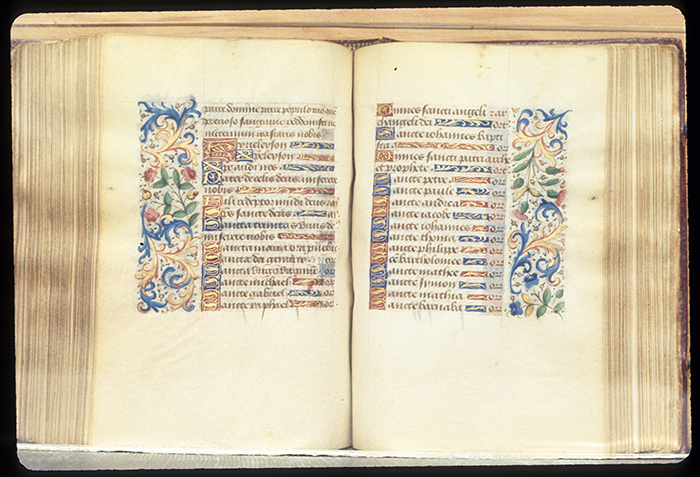 parce domine parce populo tuo que
precioso sanguine redemisti ne
in eternum irascaris nobis
Kyrieleyson
Xpeleyson
Xpe audi nos
Pater de celis deus miserere
nobis
Fili redemptor mundi deus
Sps sancte deus
Sancta trinitas unus deus
miserere nobis
Sancta maria ora pro nobis
Sancta dei genitrix
Sancta Virgo Virginum
Sancte michael
Sancte gabriel
Sancte raphael
Omnes sancti angeli z ar
changeli dei or
Sancte iohannes bapti
sta or
Omnes sancti patriarche
et prophete or
Sancte petre or
Sancte paule or
Sancte andrea or
Sancte iacobe or
Sancte iohannes or
Sancte thoma or
Sancte philippe or
Sancte bartholomee or
Sancte mathee or
Sancte symon or
Sancte mathia or
Sancte barnaba or